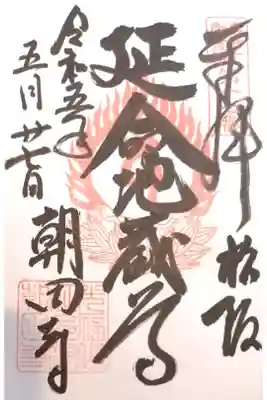 奉拝 松阪
延命地蔵尊
朝田寺
令和五年
五月廿七日